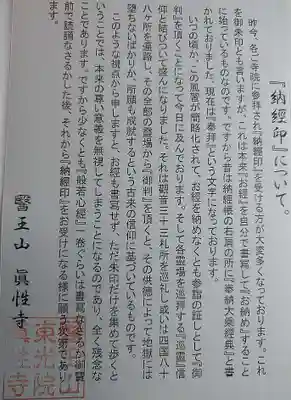 『納經印』について。
昨今、各ご寺院に参拝され『納經印』を受ける方が大変多くなっております。これ
を御朱印とも言いますが、これは本来『お經』を自分で書写して『お納め』すること
に始っているものなのです。ですから昔は納經帳の右肩の所に『奉納大乗經典』と書
かれておりました。現在は『奉拝』という文字になっております。
いつの頃か、この風習が簡略化されて、お經を納めなくとも参詣の証しとして『御
判』を頂くことになって今日に及んでおります。そして各霊場を巡拝する『巡霊』信
仰と結びついて盛んになりました。それは観音三十三札所を巡礼し或いは四国八十
八ヶ所を遍路し、その全部の霊場から『御判』を頂くと、その供徳によって地獄には
堕ちないばかりか、所願も成就するという古来の信仰に基づいているものです。
このような視点から申しますと、お經も書写せず、ただ朱印だけを集めて歩くと
いうことでは、本来の尊い意義を無視してしまうことになるのであり、全く残念な
ことであります。ですから少なくとも『般若心經』一巻ぐらいは書写なさるか御寶
前で読誦なさるかした後、それから『納經印』をお受けになる様に願う次第であり
ます。
醫王山 眞性寺
東光院